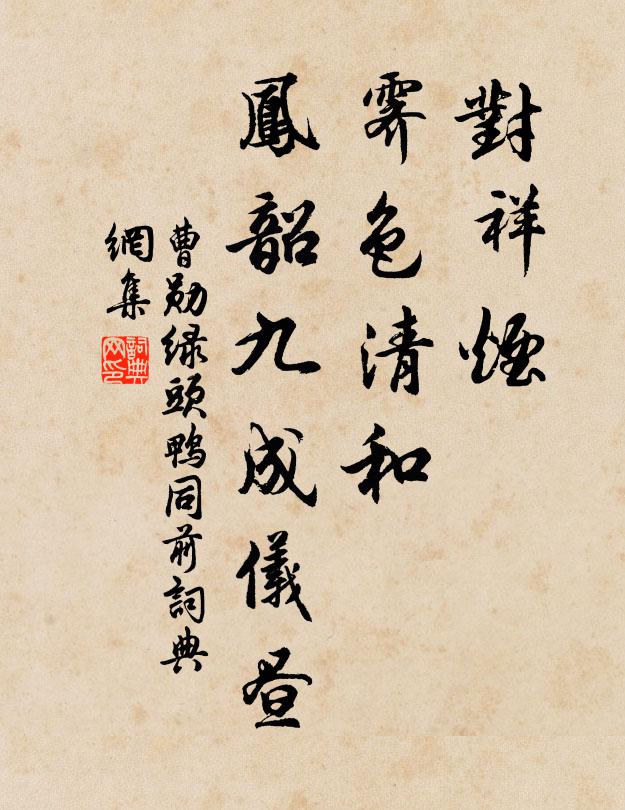 對祥煙
霽色清和
鳳韶九成儀晝
曹勛緑頭鴨同前詞典
網集
詞典
网印